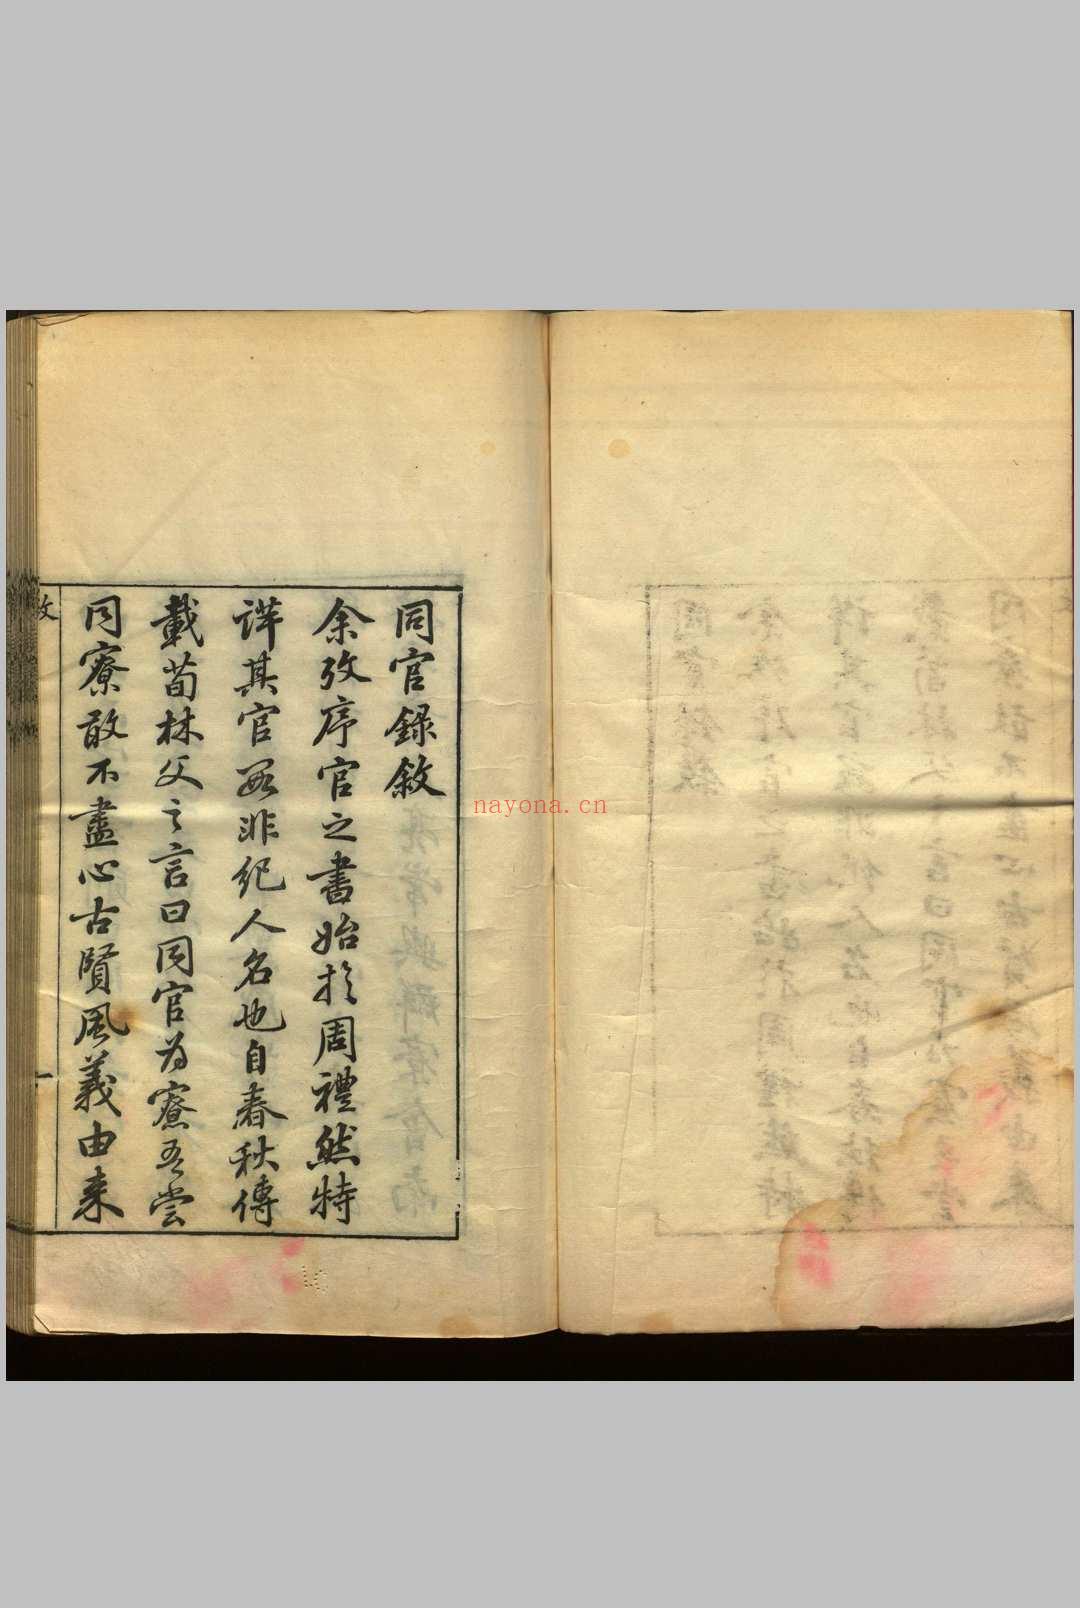 同官錄敘
余攷序官之書始於周禮然特
詳其官數非紀人名也自春秋傳
載荀林父之言曰同官為寮吾嘗
同寮敢不盡心古賢風義由來
一
nayona.cn